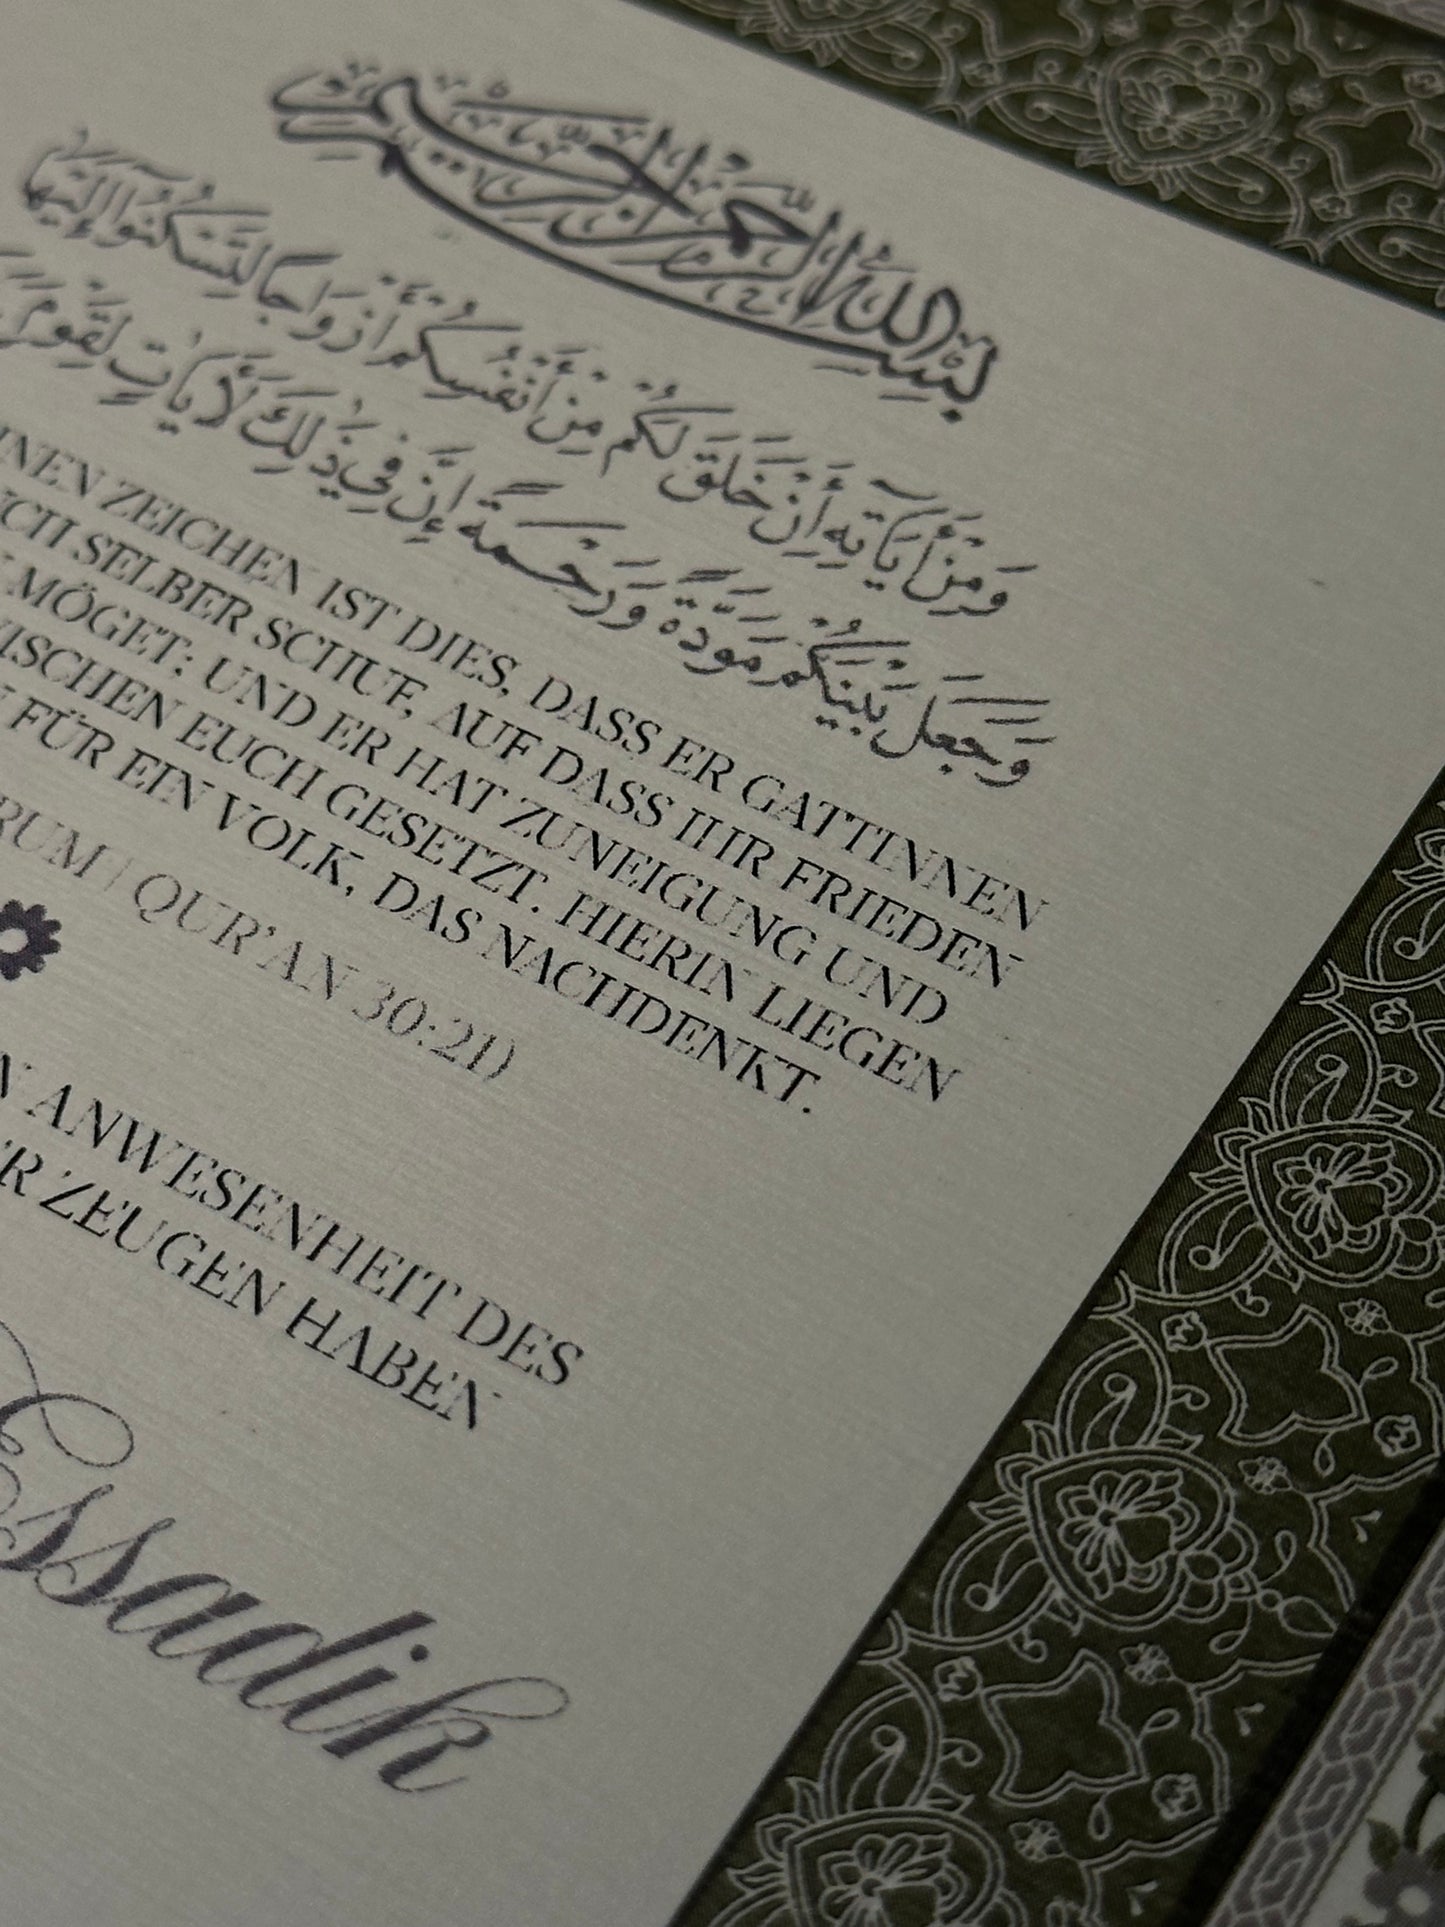 بِسْمِ اللهِ الرَّحْمٰنِ الرَّحِيْمِ
وَمِنْ أٰيَاتِهِ أَنْ خَلَقَ لَكُمْ مِنْ أَنْفُسِكُمْ أَزْوَاجًا لِتَسْكُنُوا إِلَيْهَا
وَجَعَلَ بَيْنَكُمْ مَوَدَّةً وَرَحْمَةً إِنَّ فِي ذٰلِكَ لَأٰيَاتٍ لِقَوْمٍ
ZEICHEN IST DIES, DASS ER GATTINNEN
SELBER SCHUF, AUF DASS IHR FRIEDEN
MÖGET; UND ER HAT ZUNEIGUNG UND
EUCH GESETZT. HIERIN LIEGEN
FÜR EIN VOLK, DAS NACHDENKT.
RUM | QUR'AN 30:21)
ANWESENHEIT DES
ZEUGEN HABEN
Essadik